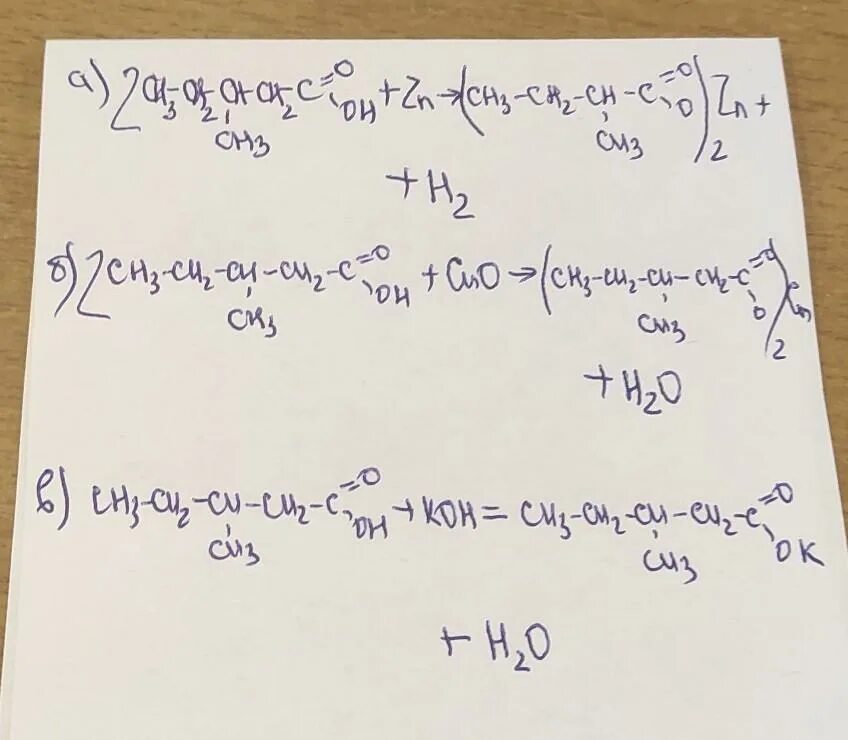 а) 2CH3-CH2-CH-CH2-C=O + Zn → (CH3-CH2-CH-C=O)2 Zn +
CH3 OH CH3 O
+ H2
б) 2CH3-CH2-CH-CH2-C=O + CuO → (CH3-CH2-CH-CH2-C=O)2
CH3 OH CH3 O
+ H2O
в) CH3-CH2-CH-CH2-C=O + KOH = CH3-CH2-CH-CH2-C=O
CH3 OH CH3 OK
+ H2O